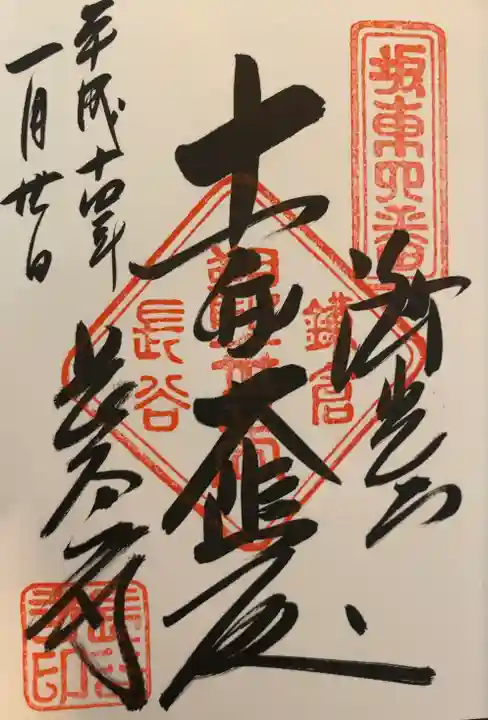 坂東四番
海光山
十一面大悲殿
鎌倉
長谷
長谷寺
平成十四年
一月廿日